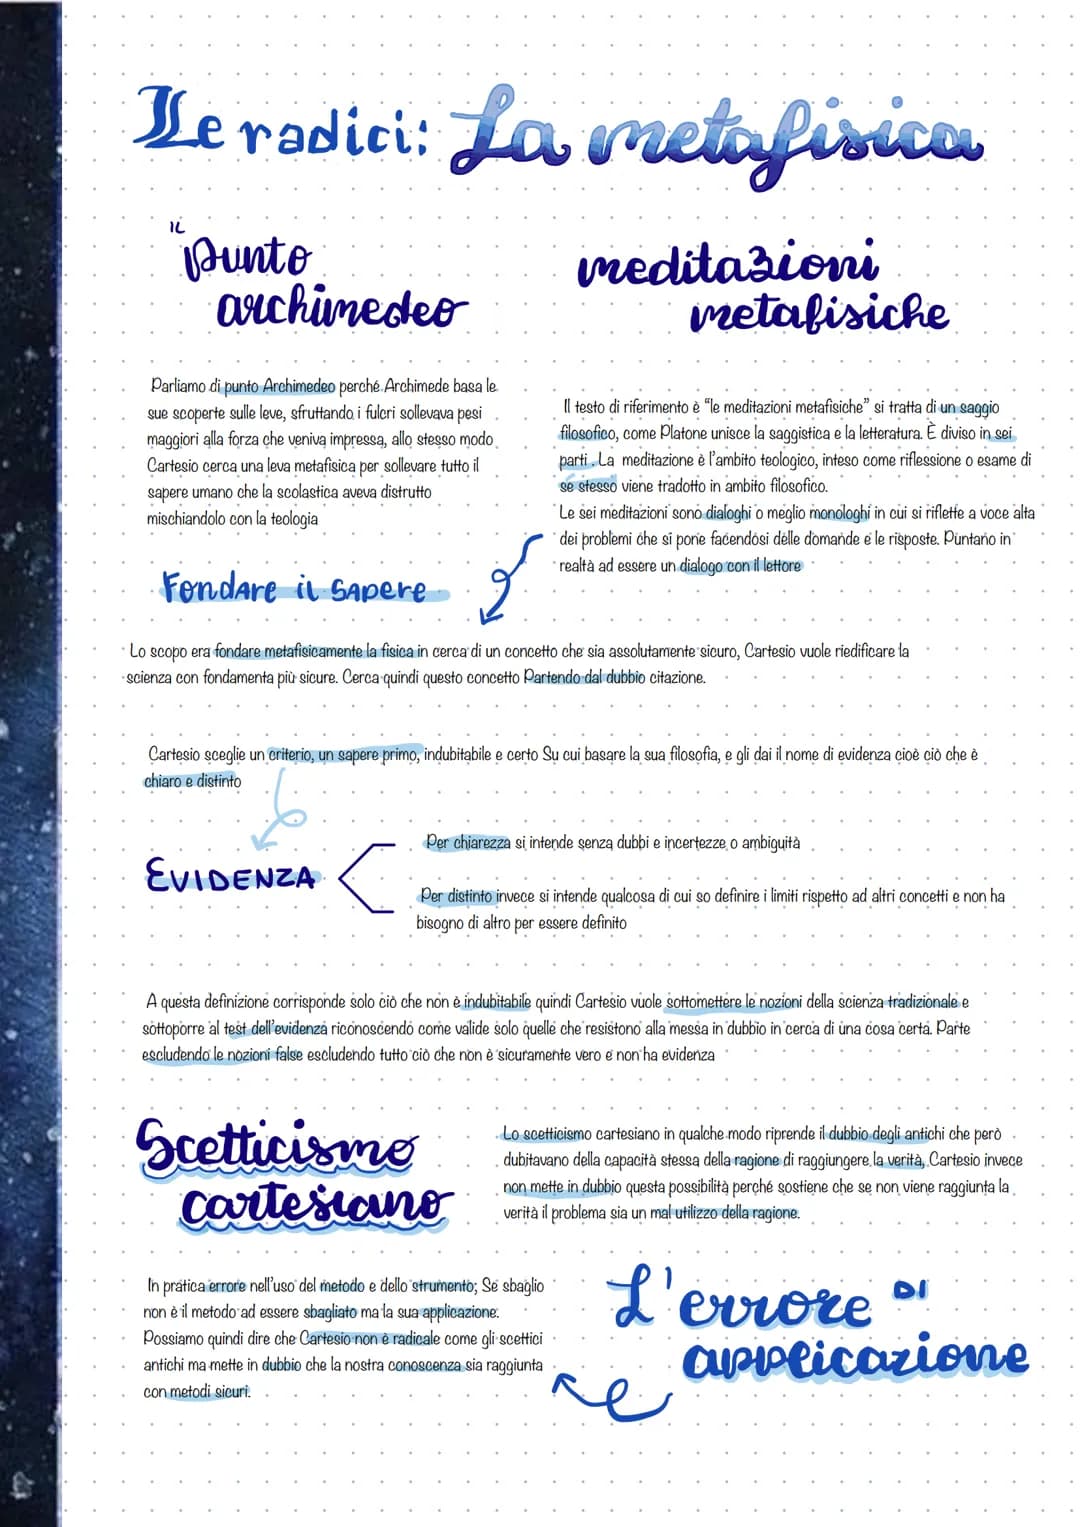 Le radici: La metafisica
IL
punto
archimedeo
Parliamo di punto Archimedeo perché Archimede basa le
sue scoperte sulle leve, sfruttando i fulcri sollevava pesi
maggiori alla forza che veniva impressa, allo stesso modo
Cartesio cerca una leva metafisica per sollevare tutto il
sapere umano che la scolastica aveva distrutto
mischiandolo con la teologia
meditazioni
metafisiche
Il testo di riferimento è “le meditazioni metafisiche” si tratta di un saggio
filosofico, come Platone unisce la saggistica e la letteratura. È diviso in sei
parti . La meditazione è l'ambito teologico, inteso come riflessione o esame di
se stesso viene tradotto in ambito filosofico.
Le sei meditazioni sono dialoghi o meglio monologhi in cui si riflette a voce alta
dei problemi che si pone facendosi delle domande e le risposte. Puntano in
realtà ad essere un dialogo con il lettore
Fondare il sapere
Lo scopo era fondare metafisicamente la fisica in cerca di un concetto che sia assolutamente sicuro, Cartesio vuole riedificare la
scienza con fondamenta più sicure. Cerca quindi questo concetto Partendo dal dubbio citazione.
Cartesio sceglie un criterio, un sapere primo, indubitabile e certo Su cui basare la sua filosofia, e gli dai il nome di evidenza cioè ciò che è
chiaro e distinto
EVIDENZA
Per chiarezza si intende senza dubbi e incertezze o ambiguità
Per distinto invece si intende qualcosa di cui so definire i limiti rispetto ad altri concetti e non ha
bisogno di altro per essere definito
A questa definizione corrisponde solo ciò che non è indubitabile quindi Cartesio vuole sottomettere le nozioni della scienza tradizionale e
sottoporre al test dell'evidenza riconoscendo come valide solo quelle che resistono alla messa in dubbio in cerca di una cosa certa. Parte
escludendo le nozioni false escludendo tutto ciò che non è sicuramente vero e non ha evidenza
Scetticismo
cartesiano
Lo scetticismo cartesiano in qualche modo riprende il dubbio degli antichi che però
dubitavano della capacità stessa della ragione di raggiungere la verità, Cartesio invece
non mette in dubbio questa possibilità perché sostiene che se non viene raggiunta la
verità il problema sia un mal utilizzo della ragione.
L'errore DI
applicazione
In pratica errore nell'uso del metodo e dello strumento; Se sbaglio
non è il metodo ad essere sbagliato ma la sua applicazione.
Possiamo quindi dire che Cartesio non è radicale come gli scettici
antichi ma mette in dubbio che la nostra conoscenza sia raggiunta
con metodi sicuri.